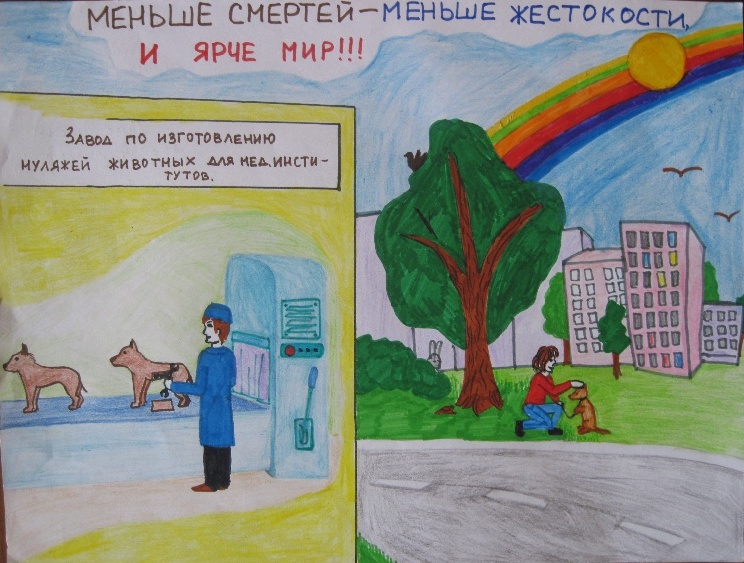 МЕНЬШЕ СМЕРТЕЙ – МЕНЬШЕ ЖЕСТОКОСТИ,
И ЯРЧЕ МИР!!!
ЗАВОД ПО ИЗГОТОВЛЕНИЮ
МУЛЯЖЕЙ ЖИВОТНЫХ ДЛЯ МЕД.ИНСТИ-
ТУТОВ.